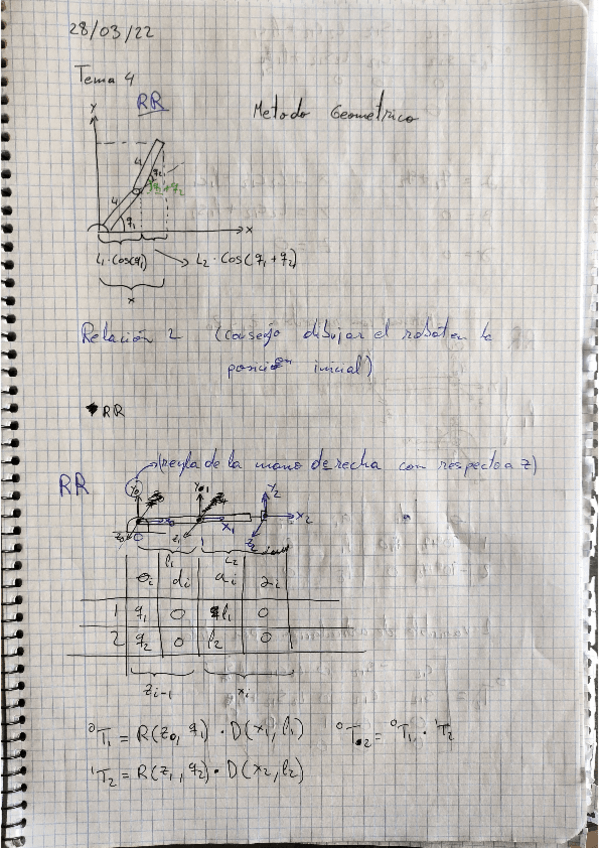 28/03/22
Tema 4
RR
Metodo Geometrico
y
L₁
q₂
q₁+q₂
L₁
q₁
x
L₁·Cos(q₁)
L₂·Cos(q₁+q₂)
x
Relación 2 (consejo dibujar el robot en la
posición inicial)
RR
(regla de la mano derecha con respecto a z)
RR
y₀
y₁
y₂
x₀
x₁
x₂
z₀
z₁
z₂
l₁
L₂
θi di ai αi
1 q₁ 0 l₁ 0
2 q₂ 0 l₂ 0
zi-1
xi
⁰T₁ = R(z₀, q₁) · D(x₁, l₁)
⁰T₂ = ⁰T₁ · ¹T₂
¹T₂ = R(z₁, q₂) · D(x₂, l₂)